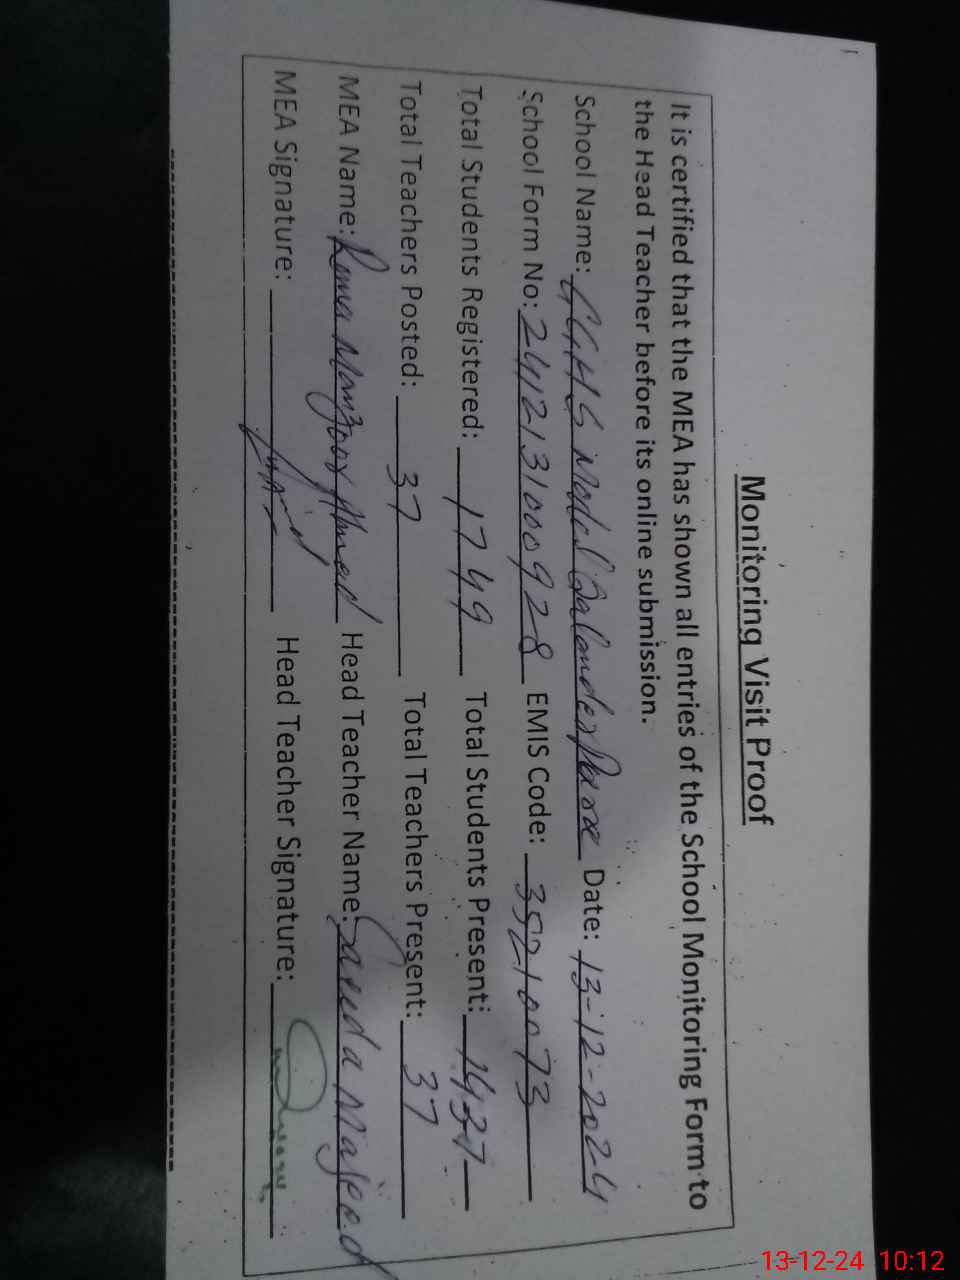 Monitoring Visit Proof
It is certified that the MEA has shown all entries of the School Monitoring Form to
the Head Teacher before its online submission.
School Name: GGHS Model Qalander Date: 13-12-2024
School Form No: 24121310000928 EMIS Code: 35210073
Total Students Registered: 1749 Total Students Present: 1437
Total Teachers Posted: 37 Total Teachers Present: 37
MEA Name: Manzoor Ahmed Head Teacher Name: Saeeda Majeed
MEA Signature: Head Teacher Signature:
13-12-24 10:12